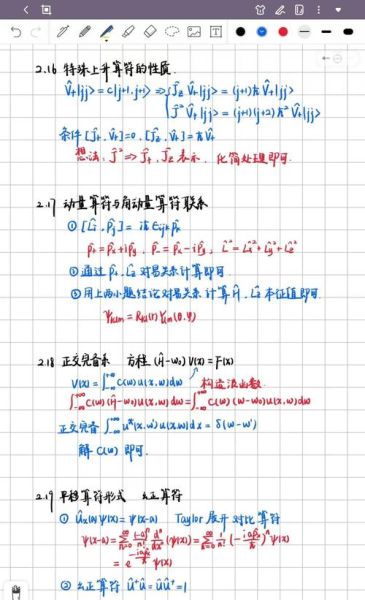 2.16 特殊上升算符的性质.
V̂₊|jj> = c|j+1, j+1> ⇒ { Ĵz V̂₊|jj> = (j+1)ħ V̂₊|jj>
Ĵ² V̂₊|jj> = (j+1)(j+2)ħ² V̂₊|jj>
条件 [Ĵ₊, V̂₊]=0, [Ĵz, V̂₊]=ħV̂₊
想法: Ĵ² ⇒ Ĵ±, Ĵz 表示, 化简处理即可.
2.17 动量算符与角动量算符联系
① [L̂i, p̂j] = iħ εijk p̂k
p̂₊ = p̂x+ip̂y, p̂₋ = p̂x-ip̂y, L̂² = L̂x²+L̂y²+L̂z²
② 通过 p̂±, L̂z 对易关系计算即可.
③ 用上两小题结论对易关系计算 Ĥ, L̂z 本征值即可.
Ψklm = Rkl(r) Ylm(θ,φ)
2.18 正交完备系 方程 (Ĥ-w₀)V(x)=F(x)
V(x) = ∫₋∞⁺∞ c(w)u(x,w)dw 构造波函数.
∫₋∞⁺∞ c(w)(Ĥ-w₀)u(x,w)dw = ∫₋∞⁺∞ c(w)(w-w₀)u(x,w)dw
正交完备 ∫₋∞⁺∞ u*(x,w')u(x,w)dx = δ(w-w')
解 c(w) 即可.
2.19 平移算符形式 幺正算符
① Ûx(a)ψ(x) = ψ(x-a) Taylor 展开对比算符
ψ(x-a) = Σₙ₌₀^∞ (-a)ⁿ/n! dⁿ/dxⁿ (ψ(x)) = Σₙ₌₀^∞ 1/n! (-iap̂x/ħ)ⁿ ψ(x)
= e^(-iap̂x/ħ) ψ(x)
② 幺正算符 Û⁺Û = ÛÛ⁺ = 1